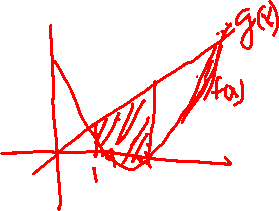 g(x)
f(x)
1